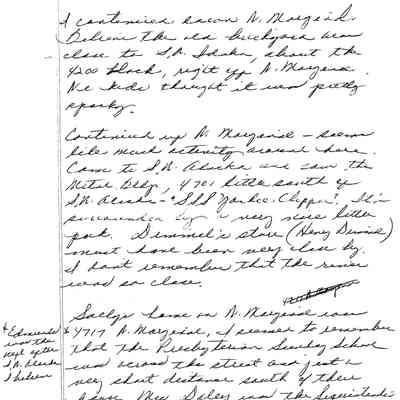 I continued down W. Marginal.
Believe the old brickyard was
close to S.W. Idaho, about the
4200 block, right off W. Marginal.
We kids thought it was pretty
spooky.
Continued up W. Marginal - seems
like much activity around here.
Came to S.W. Alaska and saw the
Metal Bldg, 4701 little south of
S.W. Alaska - "SSS Yankee Clipper". It's
surrounded by a very nice little
park. Dimmel's store (Henry Dimmel)
must have been very close by.
I don't remember that the river
was so close.
Sally's home on W. Marginal was
* 4717 W. Marginal, I seem to remember
that the Presbyterian Sunday School
was across the street and just a
very short distance south of there
* Edmunds
was the
next after
S.W. Alaska
I believe